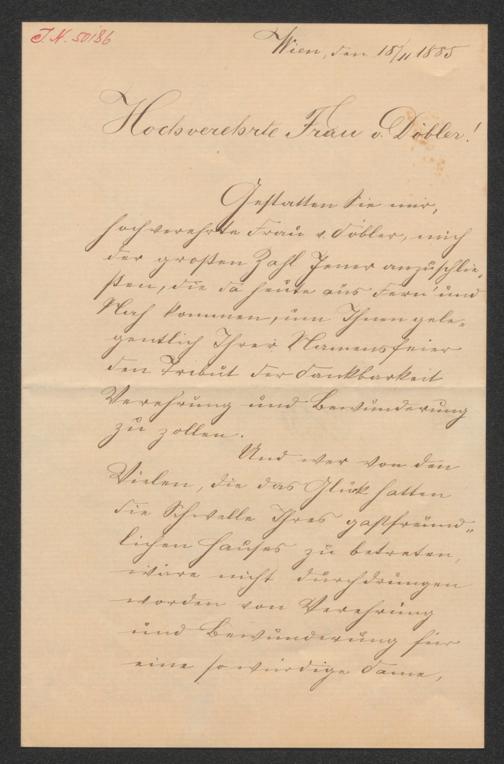 J. N. 50186
Wien, den 18/11 1885
Hochverehrte Frau v. Döbler!
Gestatten Sie mir,
hochverehrte Frau v. Döbler, mich
der großen Zahl Jener anzuschlie-
ßen, die da heute aus Fern und
Nah kommen, um Ihnen gele-
gentlich Ihrer Namensfeier
den Tribut der Dankbarkeit
Verehrung und Bewunderung
zu zollen.
Und wer von den
Vielen, die das Glück hatten
die Schwelle Ihres gastfreund-
lichen Hauses zu betreten,
wäre nicht durchdrungen
worden von Verehrung
und Bewunderung für
eine so würdige Dame,